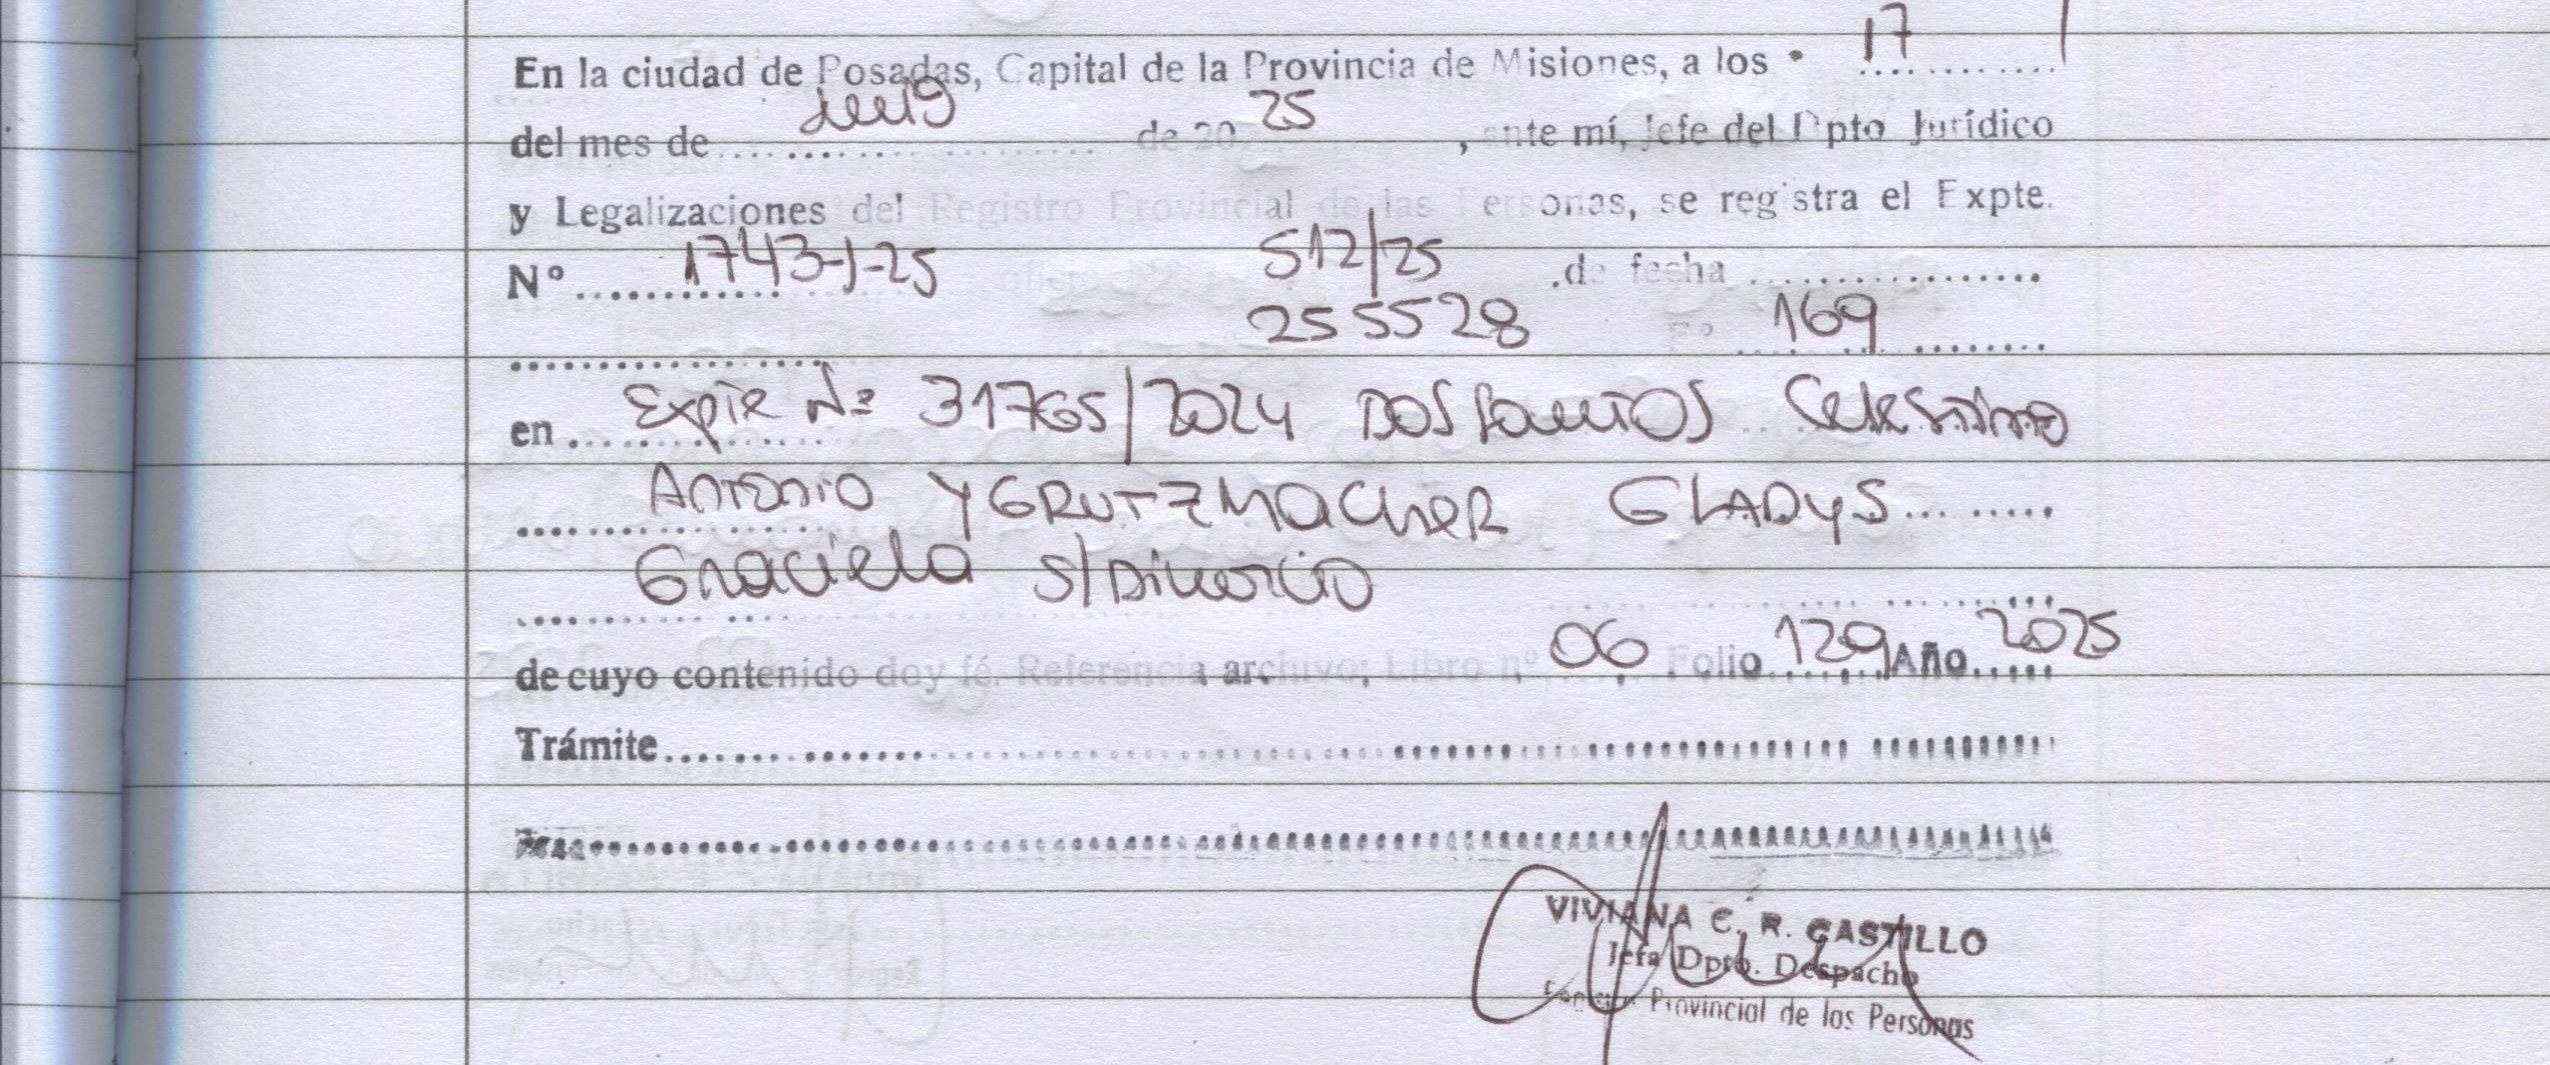 En la ciudad de Posadas, Capital de la Provincia de Misiones, a los 17
del mes de de 20 25, ante mí, Jefe del Dpto Jurídico
y Legalizaciones del Registro Provincial de las Personas, se registra el Expte.
Nº 1743-J-25 512/25 de fecha
255528 Fº 169
en Expte Nº 31765/2024 DOS SANTOS Celestino
Antonio Y GRUTZMACHER GLADYS
Graciela S/Divorcio
de cuyo contenido doy fé. Referencia archivo: Libro nº 06 Folio 129 Año 2025
Trámite
VIVIANA C. R. CASTILLO
Jefa Dpto. Despacho
Provincial de las Personas